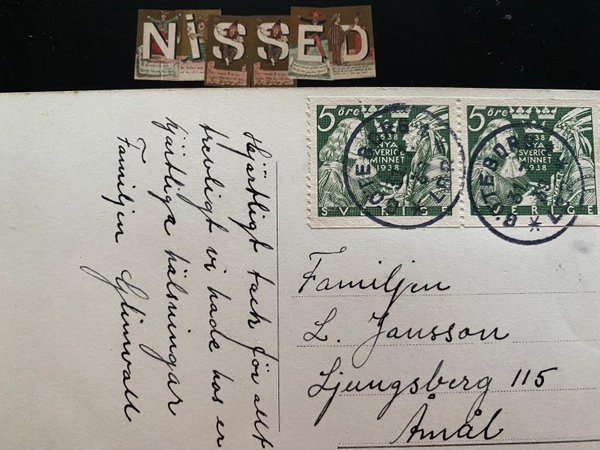 NiSSED
5 öre
1638
NYA
SVERIGE
MINNET
1938
SVERIGE
5 öre
1638
NYA
SVERIGE
MINNET
1938
SVERIGE
GÖTEBORG
GÖTEBORG
Hjärtligt tack för allt
trevligt vi hade hos er
hjärtliga hälsningar
Familjen Glimvall
Familjen
L. Jansson
Ljungsberg 115
Åmål